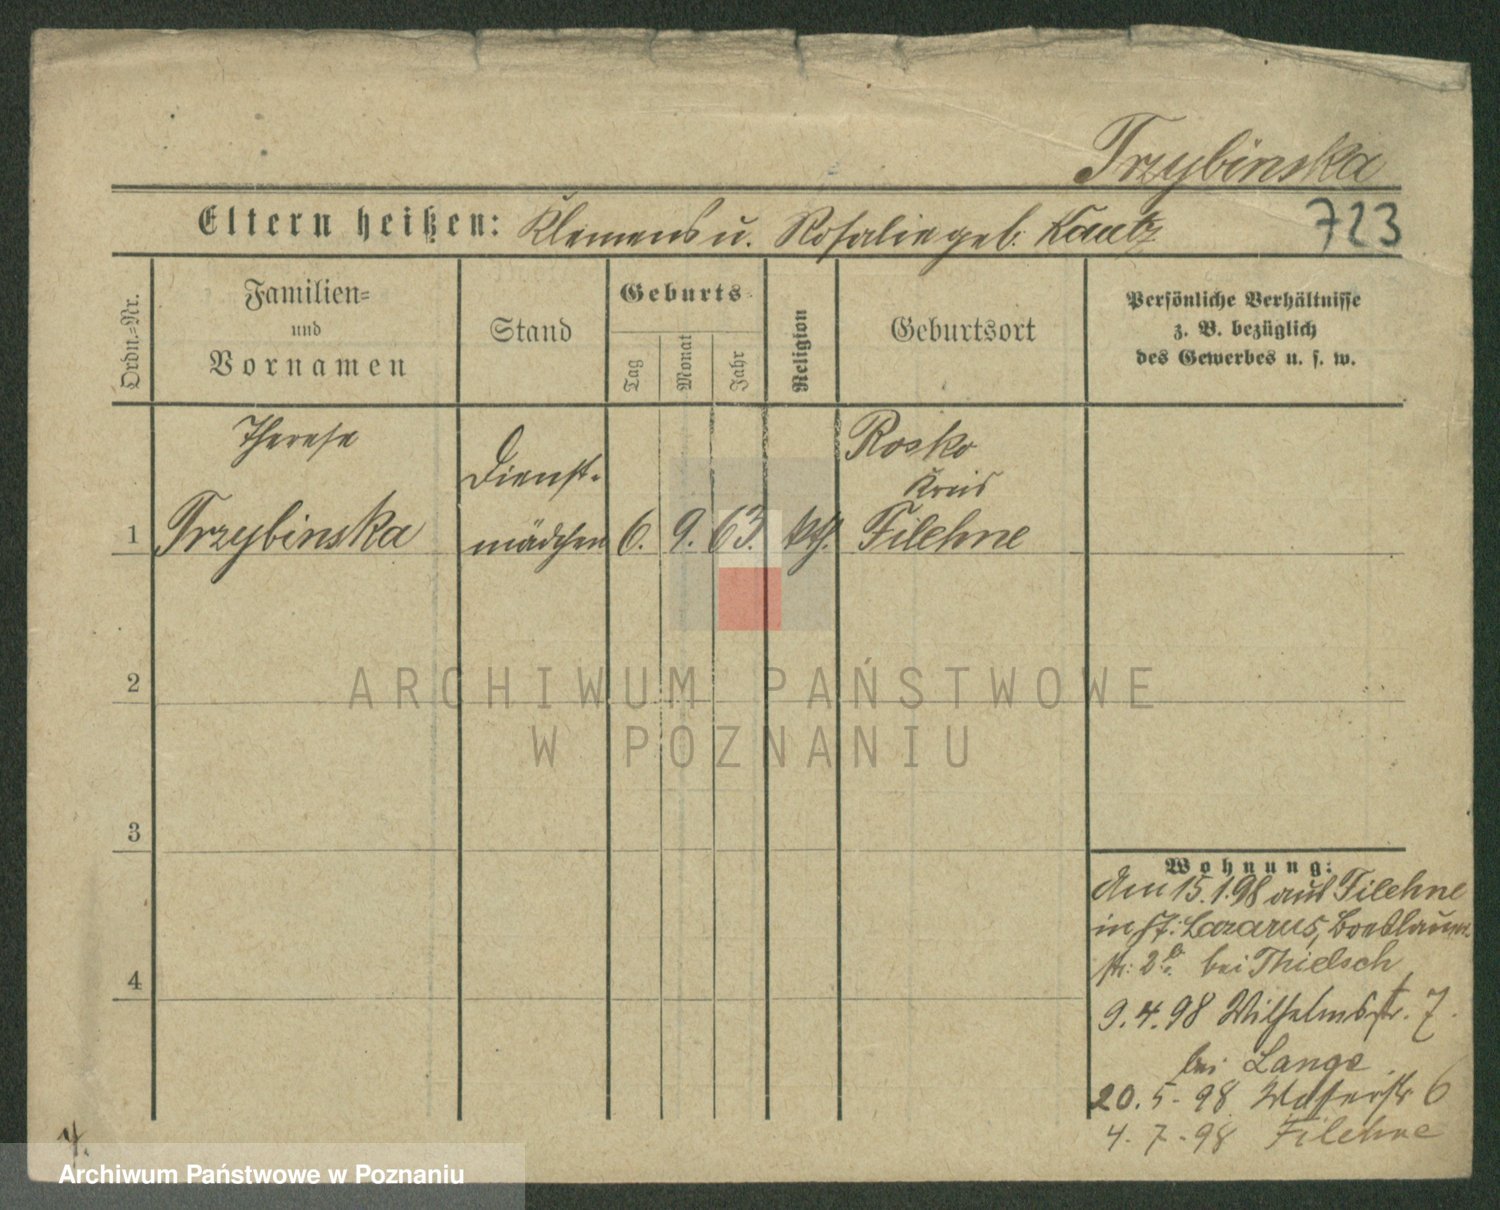 Trzybinska
Eltern heißen: Klemens u. Rosalie geb. Kautz 723
Ordn.=Nr.
Familien=
und
Vornamen
Stand
Geburts=
Tag
Monat
Jahr
Religion
Geburtsort
Persönliche Verhältnisse
z. B. bezüglich
des Gewerbes u. s. w.
Therese
Dienst-
Rosko
Kreis
1 Trzybinska mädchen 6. 9. 63. kth. Filehne
2
3
4
Wohnung:
Am 15.1.98 aus Filehne
in St: Lazarus,
str: 2 bei Thielsch
9.4.98 Wilhelmstr. 7.
bei Lange
20.5.98 Wasserstr 6
4.7.98 Filehne
ARCHIWUM PAŃSTWOWE
W POZNANIU
Archiwum Państwowe w Poznaniu